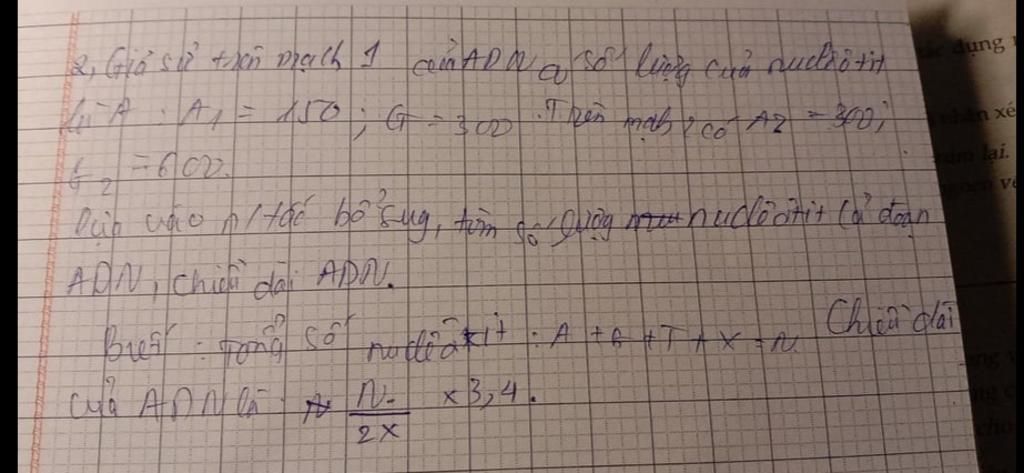 2, Giả sử trên mạch 1 của ADN có số lượng của nuclêôtit
là A : A1 = 150 ; G = 300 . Trên mạch 2 có A2 = 300 ;
G2 = 600.
Dựa vào n/tắc bổ sung, tìm số lượng nuclêôtit cả đoạn
ADN, chiều dài ADN.
Biết : Tổng số nuclêôtit : A + G + T + X = N. Chiều dài
của ADN là N/2x x 3,4.
tác dụng
nhận xé
lại.